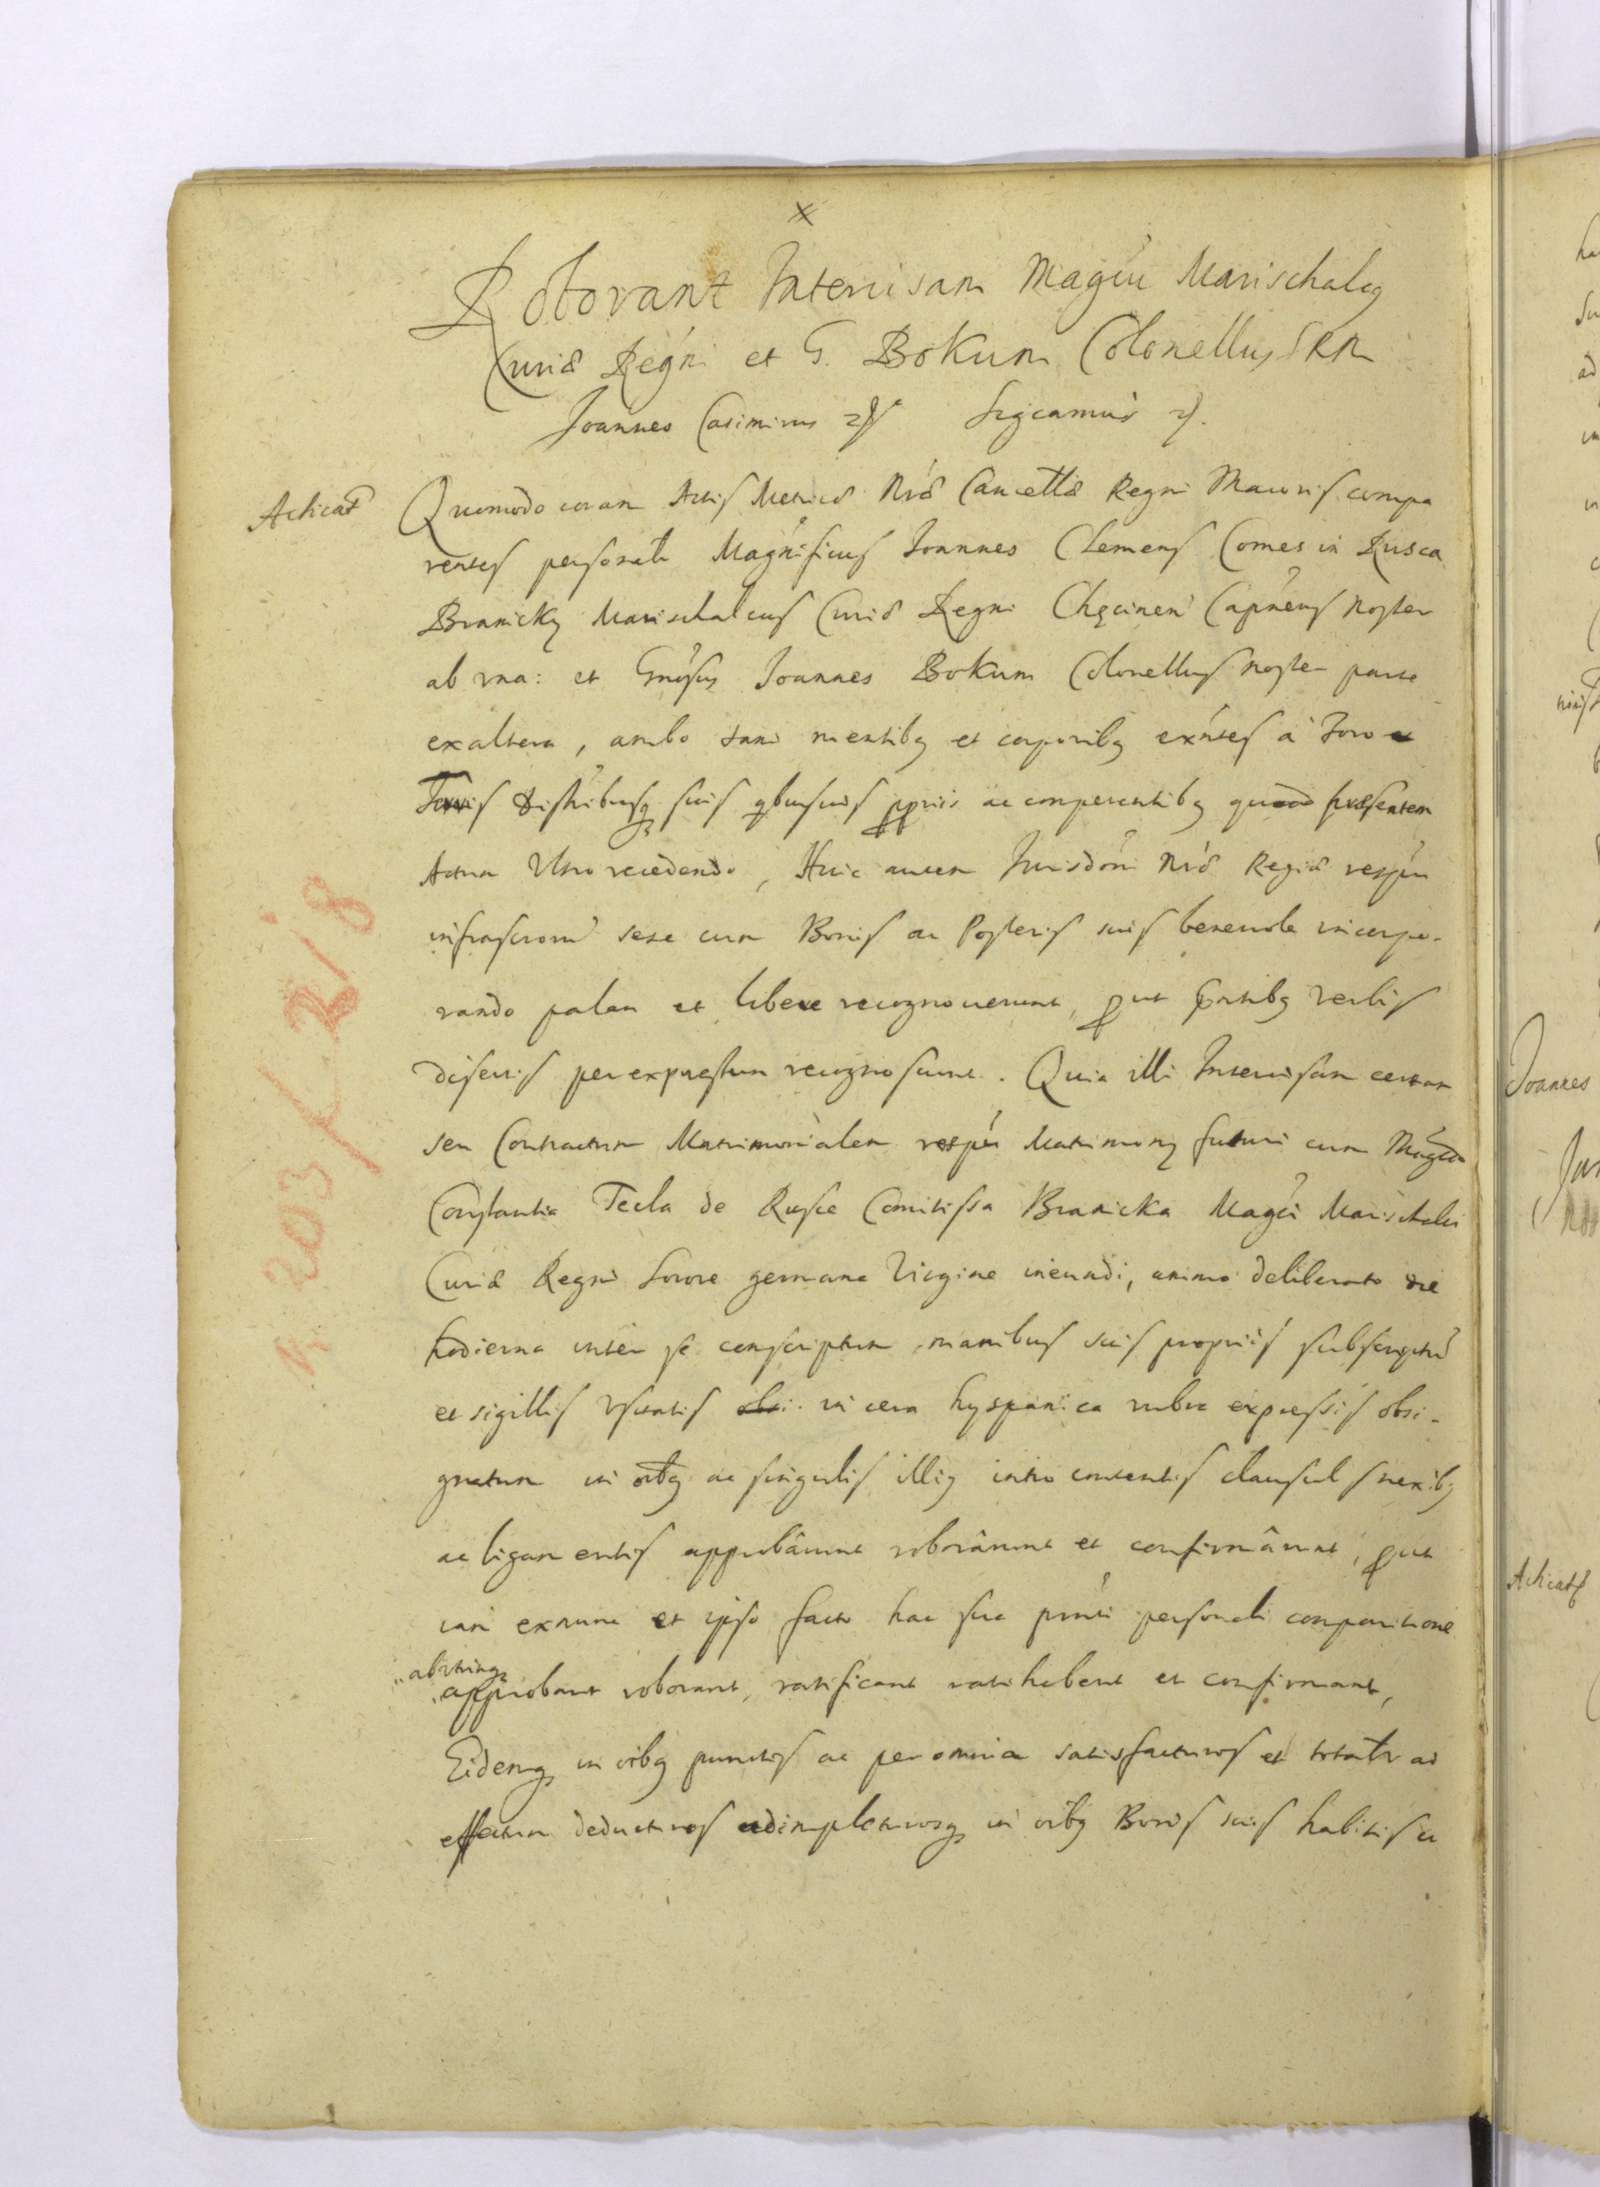 x
Roborant Intercisam Magcus Marischalcus
Curiæ Regni et G. Bokum Colonellus SRM
Joannes Casimirus Significamus
Acticat
Quomodo coram Actis Metrices Nræ Cancellæ Regni Maioris compa
rentes personalr Magnificus Joannes Clemens Comes in Rusca
Branicky Marischalcus Curiæ Regni Chęcinen Capneus Noster
ab vna: et Gnosus Joannes Bokum Colonellus noster parte
exaltera, ambo sani mentibq et corporibq exntes à Foro et
Foris districtibusq suis qbusuis ppriis ac competentibq quoad præsentem
Actum Vltro recedendo, Huic autem Jurisdoni Nræ Regiæ respu
infrascrorum sese cum Bonis ac Posteris suis beneuole incorpo-
rando palam et libere recognouerunt, put pntibq verbis
disertis per expressum recognoscunt. Quia illi Intercisam certam
seu Contractum Matrimonialem respu Matrimonij futuri cum Magca
Constantia Tecla de Rusce Comitissa Branicka Magci Marischalci
Curiæ Regni Sorore germana Virgine ineundi, animo deliberato die
hodierna inter se conscriptum manibus suis proprijs subscriptu
et sigillis vsitatis obsi. in cera hyspanica rubra expressis obsi-
gnatum in oibq ac singulis illiq intro contentis clausulis nexibq
ac ligamentis approbârunt roborârunt et confirmârunt, put
iam exnunc et ipso facto hac sua pnti personali comparitione
abvtrinq
approbant roborant, ratificant ratihabent et confirmant,
Eidemq in oibq punctis ac per omnia satisfacturos et totalr ad
effectum deducturos adimpleturosq in oibq Bonis suis habitis et
N 203 f. 218
Joannes
Acticat